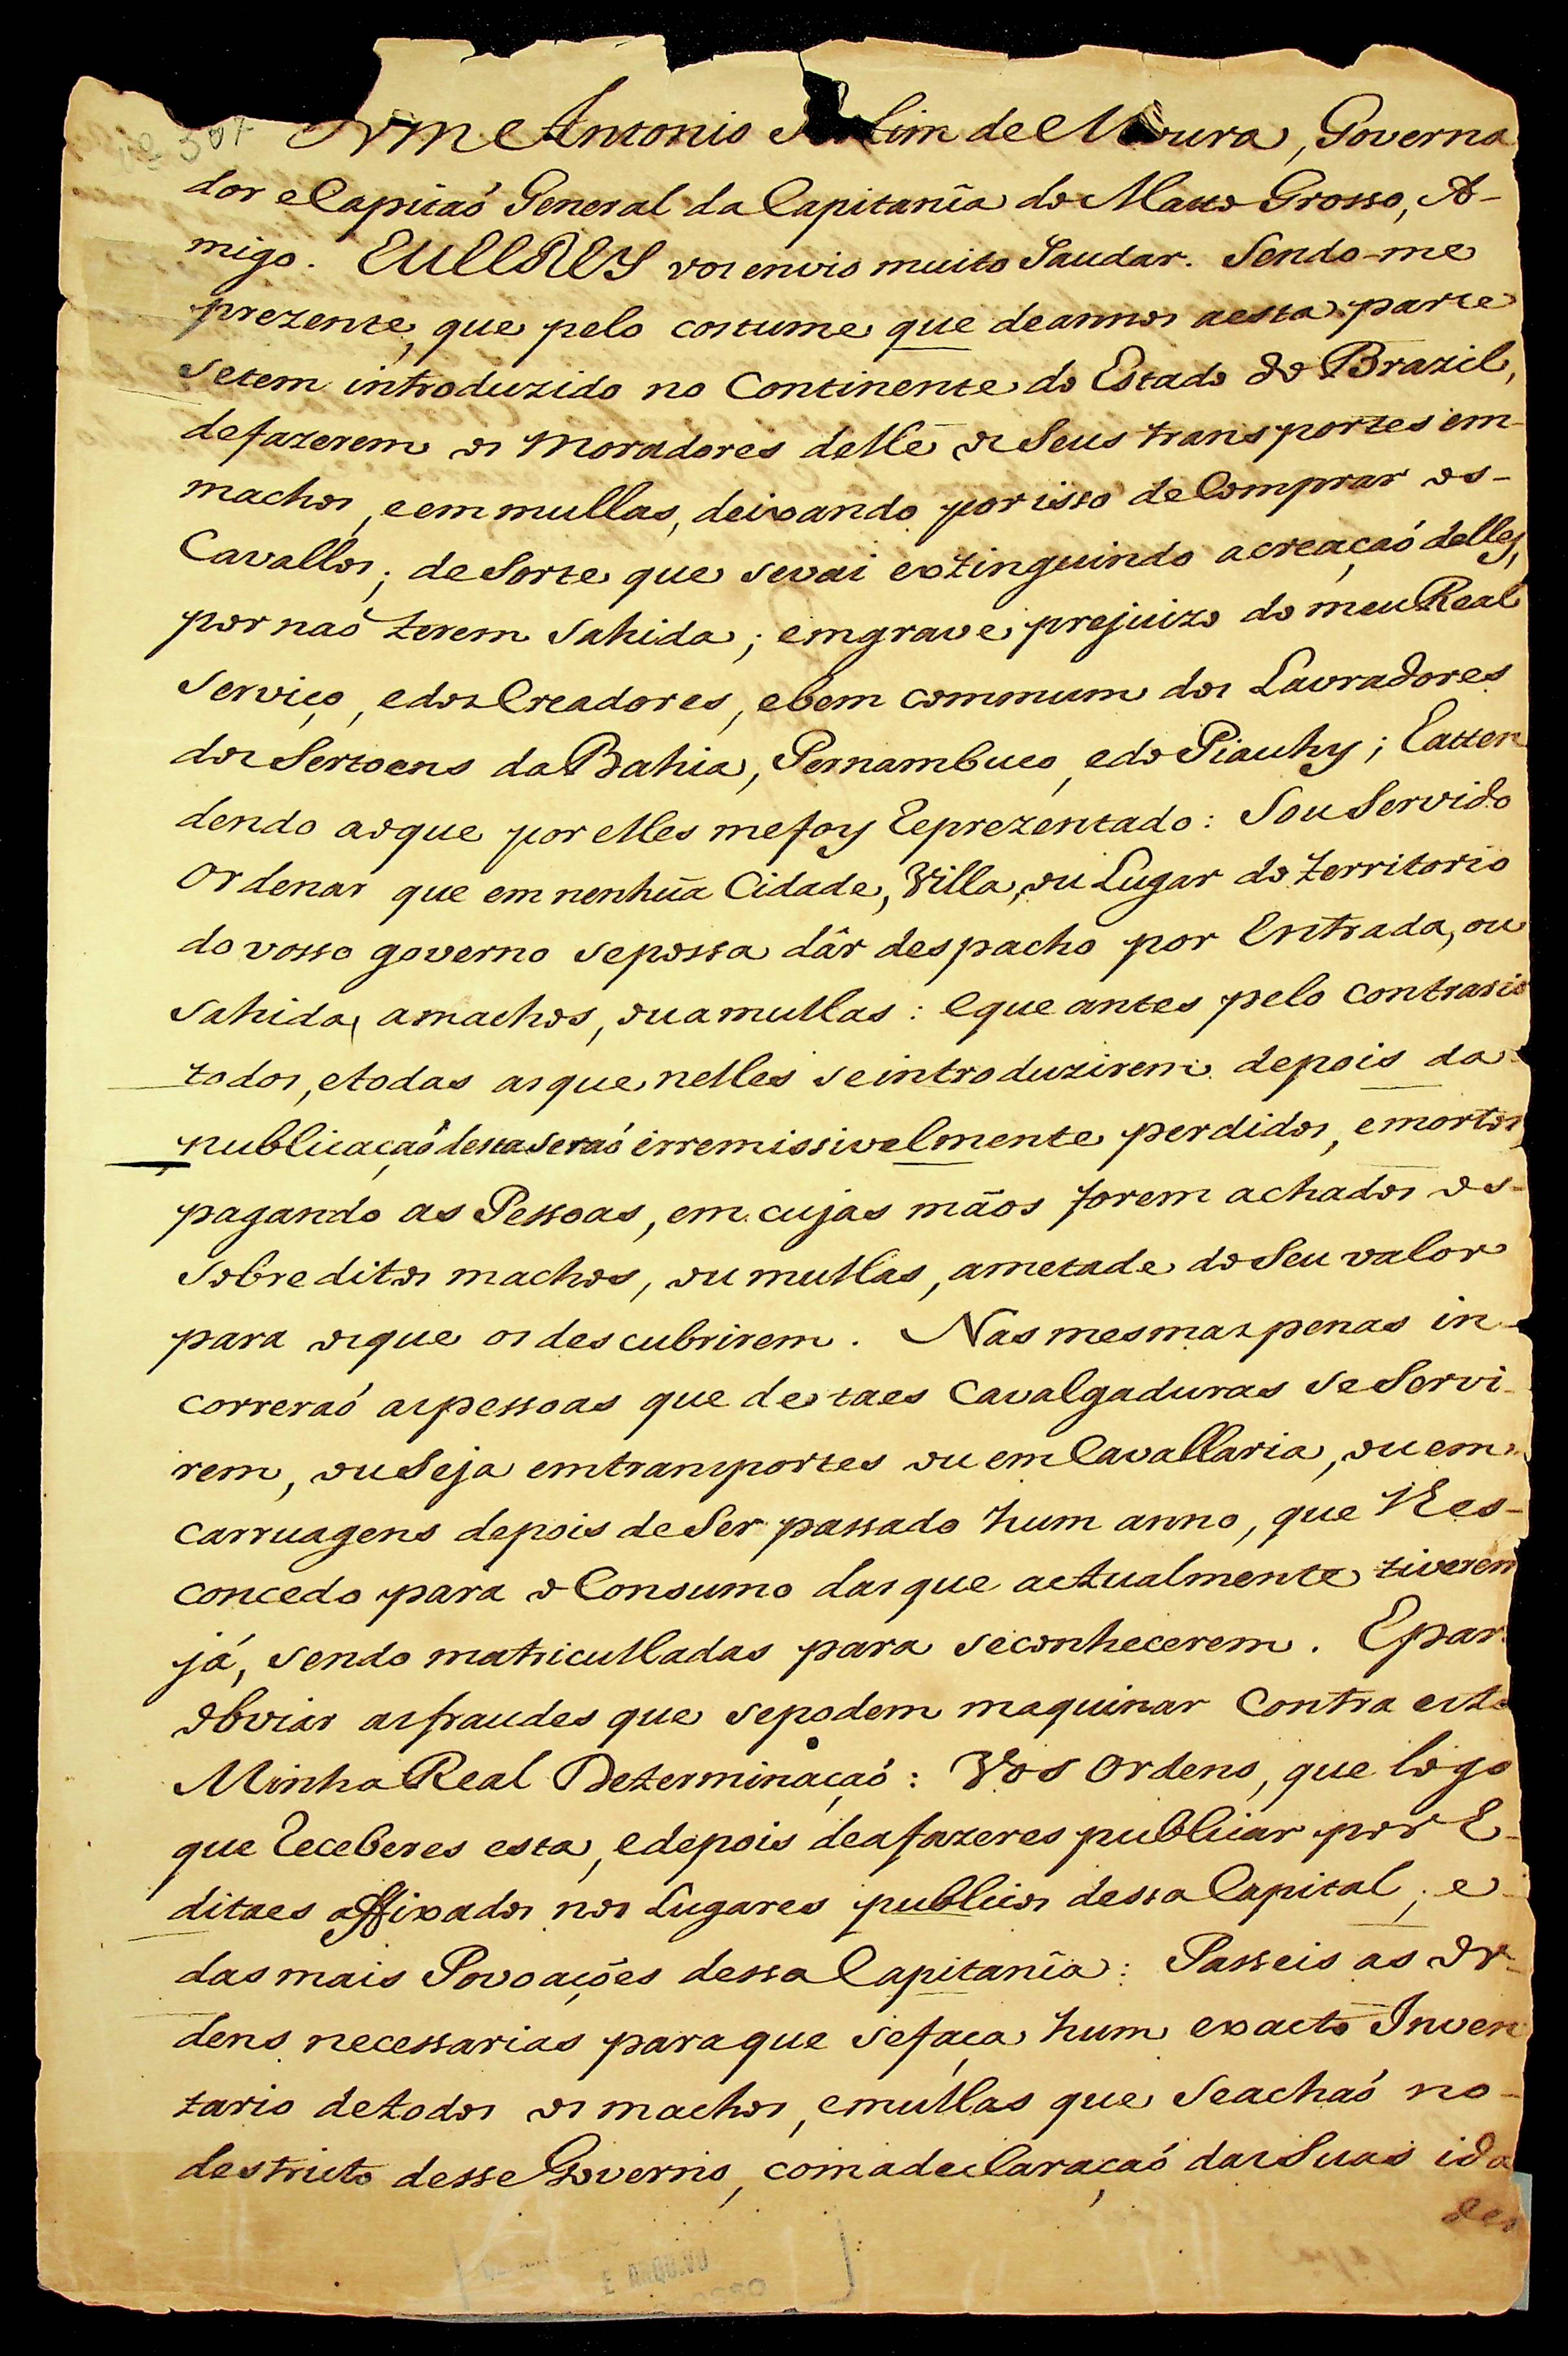 Dom Antonio Rolim de Moura, Governa
dor e Capitaó General da Capitanîa do Matto Grosso, A-
migo. EU ELREY vos envio muito Saudar. Sendo-me
prezente, que pelo costume que de annos a esta parte
se tem introduzido no Continente do Estado do Brazil,
de fazerem os Moradores delle os Seus transportes em
machos, e em mullas, deixando por isso de Comprar os-
Cavallos; de Sorte que se vai extinguindo a creaçaó delles,
por naó terem Sahida; em grave prejuizo do meu Real
Serviço, e dos Creadores, e bem commum dos Lavradores
dos Sertoens da Bahia, Pernambuco, e do Piauhy; E atten
dendo ao que por elles me foy Reprezentado: Sou Servido
Ordenar que em nenhũa Cidade, Villa, ou Lugar do territorio
do vosso governo se possa dâr despacho por Entrada, ou
Sahida, a machos, ou a mullas: E que antes pelo contrario
todos, e todas as que nelles se introduzirem depois da
publicaçaó desta seraó irremissivelmente perdidos, e mortos,
pagando as Pessoas, em cujas mãos forem achados os-
Sobreditos machos, ou mullas, ametade do Seu valor
para os que os descubrirem. Nas mesmas penas in-
correraó as pessoas que de taes Cavalgaduras se Servi-
rem, ou Seja em transportes ou em Cavallaria, ou em
carruagens depois de Ser passado hum anno, que lles-
concedo para o Consumo das que actualmente tiverem
já, sendo matriculladas para se conhecerem. E par
obviar as fraudes que se podem maquinar Contra esta
Minha Real Determinaçaó: Vos Ordeno, que logo
que Receberes esta, e depois de a fazeres publicar por E-
ditaes affixados nos Lugares publicos dessa Capital, e
das mais Povoações dessa Capitanîa: Passeis as Or-
dens necessarias para que se faça hum exacto Inven
tario de todos os machos, e mullas que Se achaó no-
destricto desse Governo, com a declaraçaó das Suas ida
des